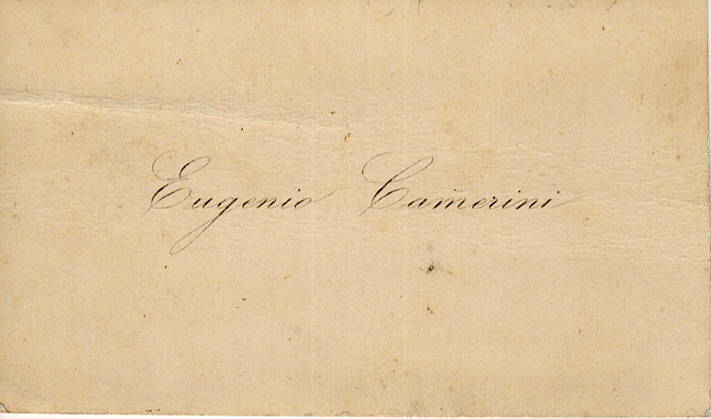 Eugenio Camerini